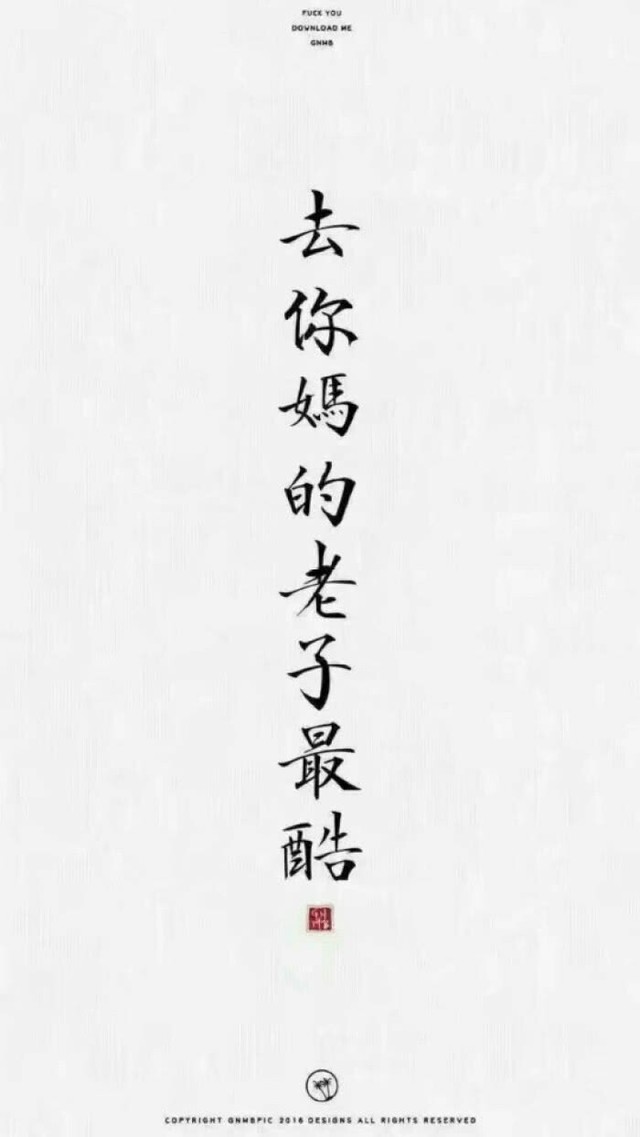 FUCK YOU
DOWNLOAD ME
GNMB
去你媽的老子最酷
COPYRIGHT GNMBPIC 2016 DESIGNS ALL RIGHTS RESERVED